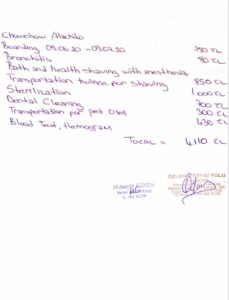 Chowchow / Hachiko
Boarding 09.06.20 - 09.07.20 750 TL
Bronchitis 80 TL
Bath and Health shaving with anesthesia,
Transportation twince for shaving 850 TL
Sterilization 1.000 TL
Dental Cleaning 700 TL
Transportation for pet Otel 300 TL
Blood Test, Hemogram 430 TL
TOTAL = 4,110 TL